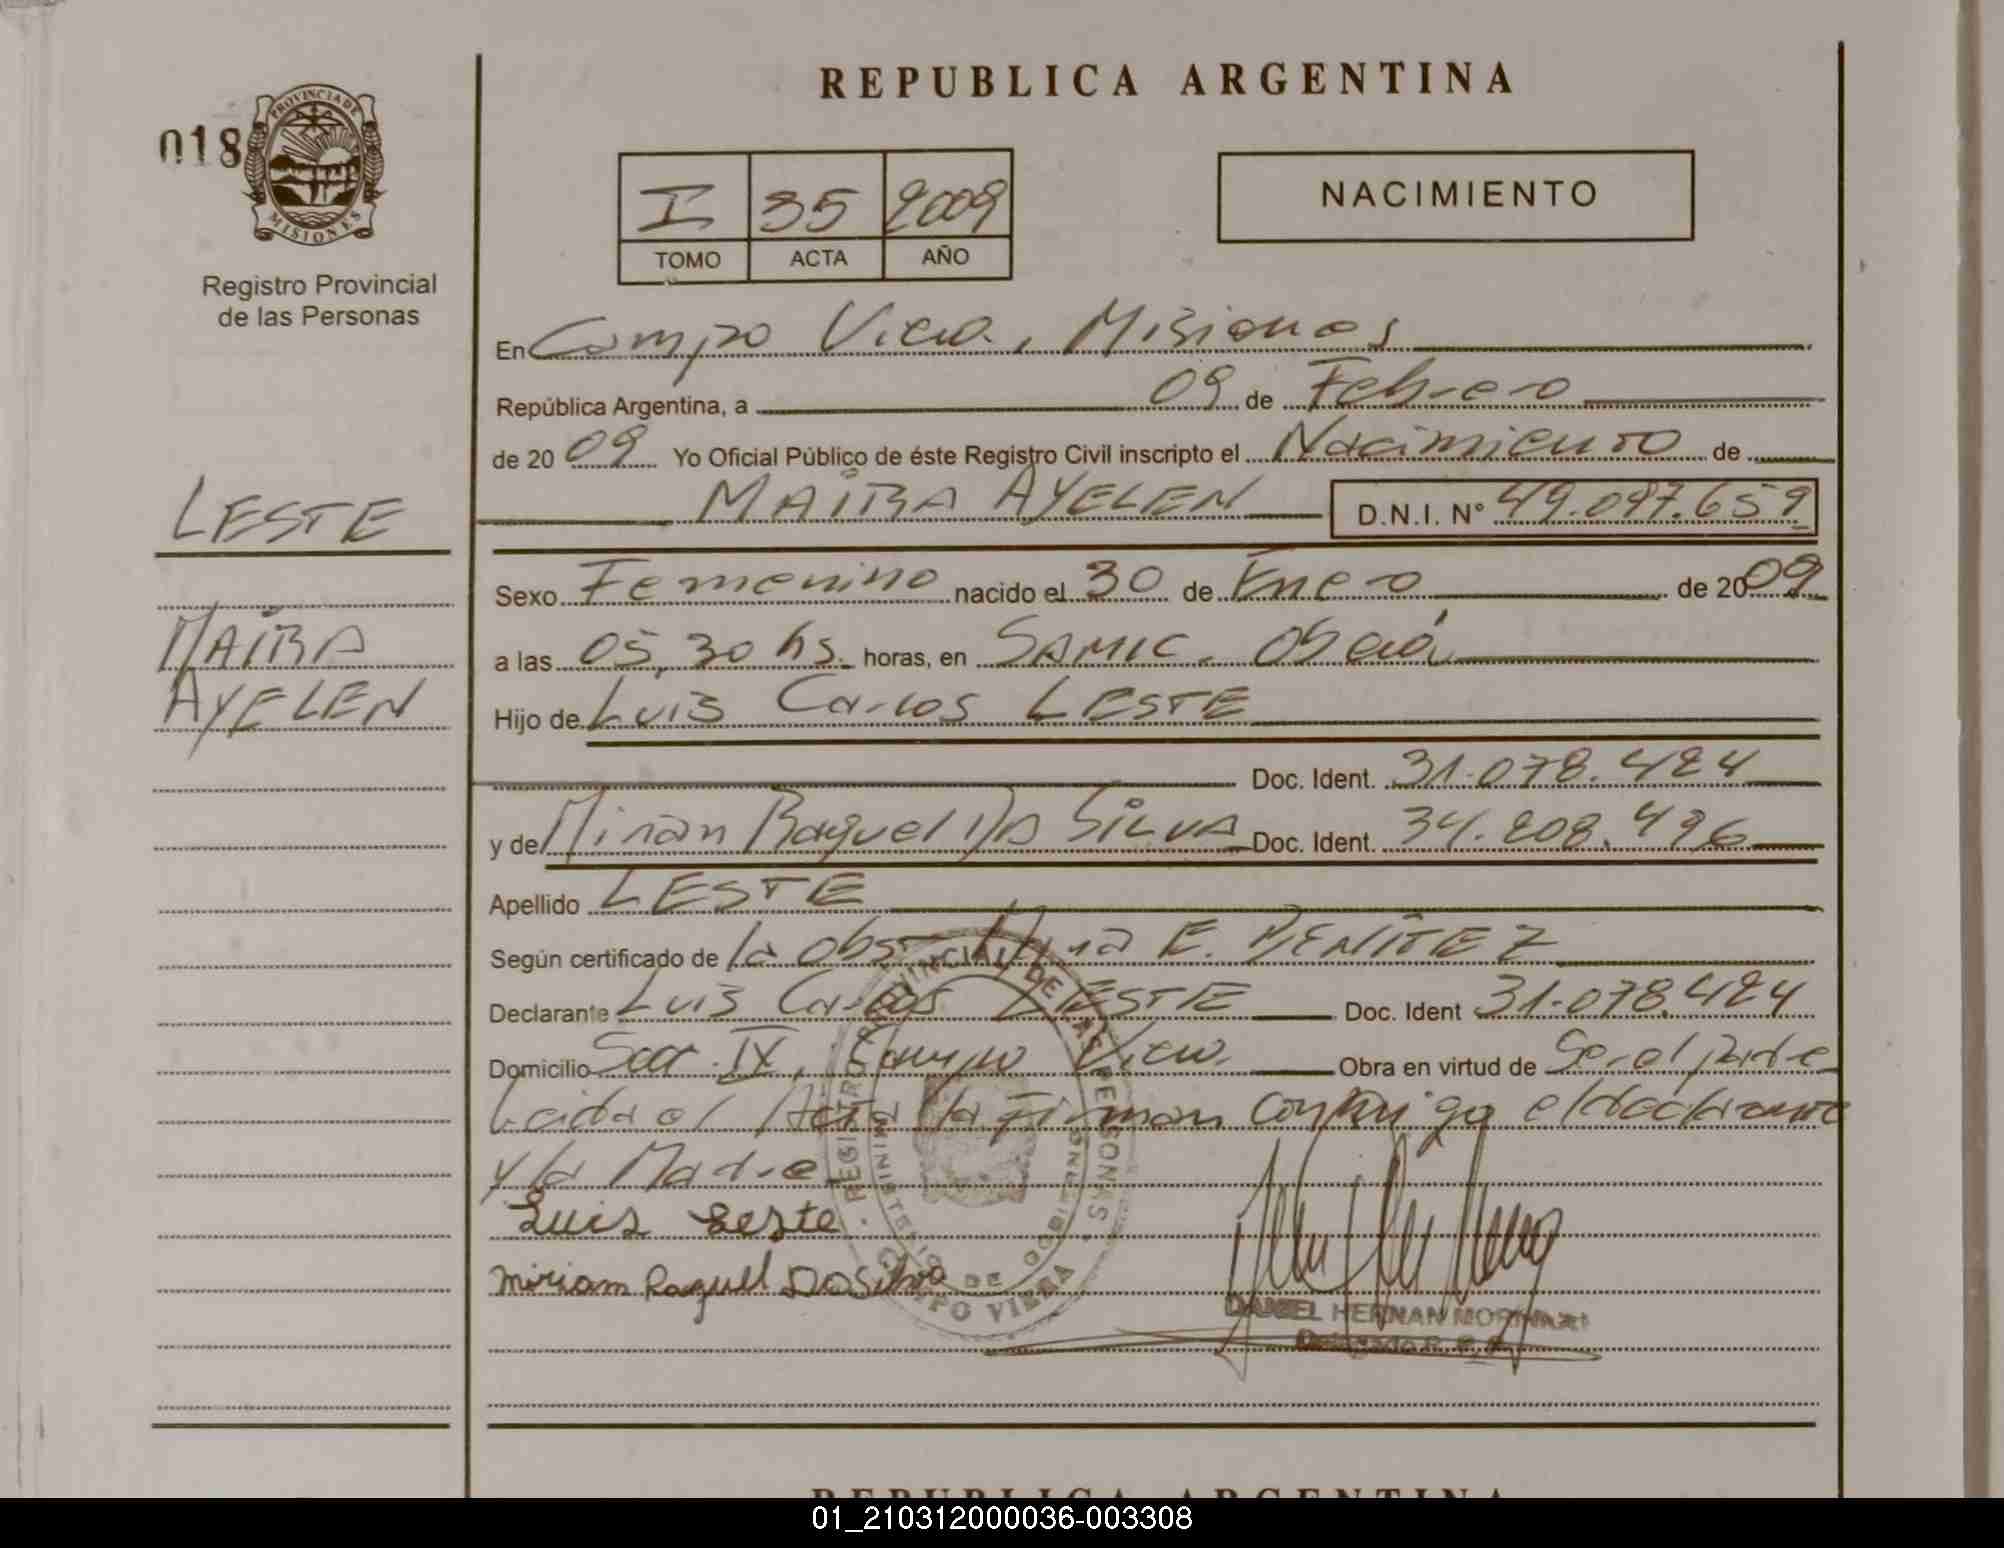 REPUBLICA ARGENTINA
018
PROVINCIA DE
MISIONES
Registro Provincial
de las Personas
I 35 2009
TOMO ACTA AÑO
NACIMIENTO
En Campo Viera, Misiones
República Argentina, a 09 de Febrero
de 2009 Yo Oficial Público de éste Registro Civil inscripto el Nacimiento de
MAIRA AYELEN D.N.I. N° 49.097.659
LESTE
MAIRA
AYELEN
Sexo Femenino nacido el 30 de Enero de 2009
a las 05,30 hs. horas, en SAMIC. Oberá
Hijo de Luis Carlos LESTE
Doc. Ident. 31.078.424
y de Mirian Raquel DA SILVA Doc. Ident. 34.208.496
Apellido LESTE
Según certificado de la obst. E. BENITEZ
Declarante Luis Carlos LESTE Doc. Ident 31.078.424
Domicilio Secc. IX, Campo Viera Obra en virtud de Ser el padre
Leida el Acta la Firman Conmigo el declarante
y la Madre
Luis Leste
Miriam Raquel Da Silva
REGISTRO PROVINCIAL DE LAS PERSONAS
MINISTERIO DE GOBIERNO
CAMPO VIERA
DANIEL HERNAN
REPUBLICA ARGENTINA
01_210312000036-003308